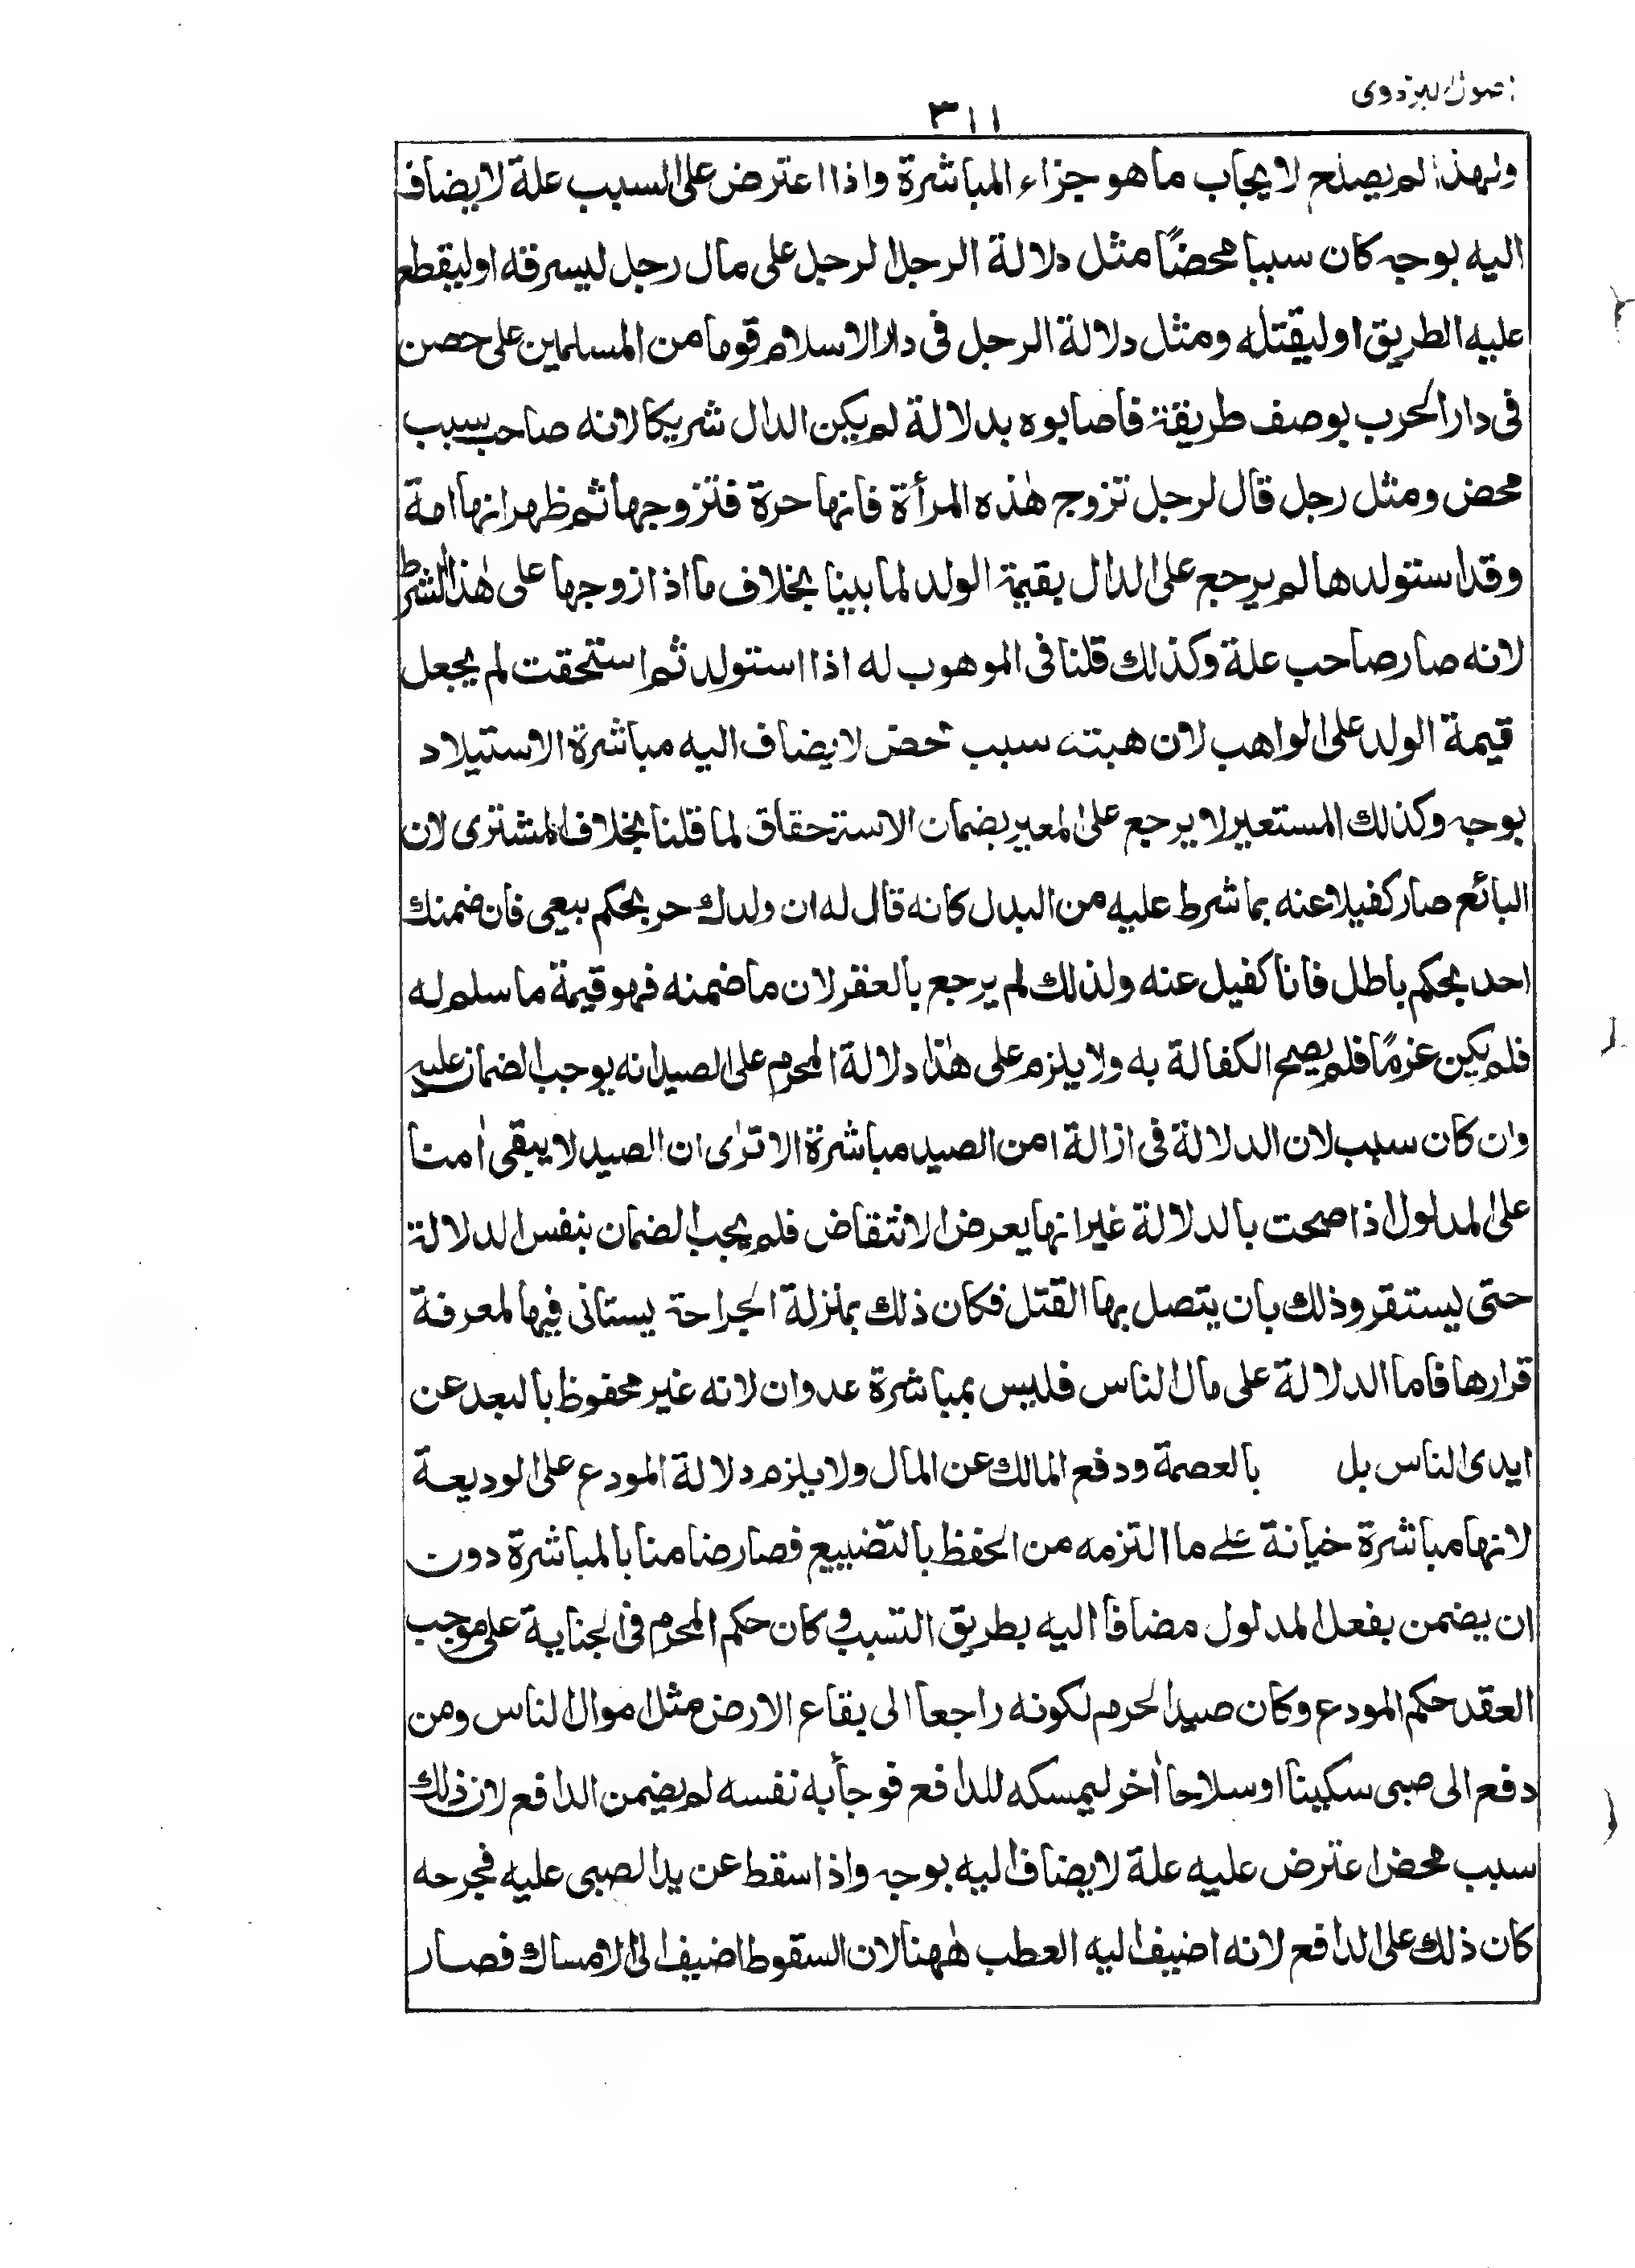 اصول البزدوی
٣١١
ولهذا لم يصلح لايجاب ما هو جزاء المباشرة واذا اعترض على السبب علة لا يضاف
اليه بوجه كان سببا محضًا مثل دلالة الرجل الرجل على مال رجل ليسرقه او ليقطع
عليه الطريق او ليقتله ومثل دلالة الرجل فى دار الاسلام قوما من المسلماين على حصن
فى دار الحرب بوصف طريقة فاصابوه بدلالة لم يكن الدال شريكا لانه صاحب سبب
محض ومثل رجل قال لرجل تزوج هٰذه المرأة فانها حرة فتزوجها ثم ظهر انها امة
وقد استولدها لم يرجع على الدال بقيمة الولد لما بينا بخلاف ما اذا زوجها على هٰذا الشرط
لانه صار صاحب علة وكذلك قلنا فى الموهوب له اذا استولد ثم استحقت لم يجعل
قيمة الولد على الواهب لان هبته سبب محض لا يضاف اليه مباشرة الاستيلاد
بوجه وكذلك المستعير لا يرجع على المعير بضمان الاستحقاق لما قلنا بخلاف المشترى لان
البائع صار كفيلا عنه بما شرط عليه من البدل كانه قال له ان ولدك حر بحكم بيعى فان ضمنك
احد بحكم باطل فانا كفيل عنه ولذلك لم يرجع بالعقر لان ما ضمنه فهو قيمة ما سلم له
فلم يكن غرمًا فلم يصح الكفالة به ولا يلزم على هٰذا دلالة المحرم على الصيد انه يوجب الضمان عليه
وان كان سبب لان الدلالة فى ازالة امن الصيد مباشرة الا ترٰى ان الصيد لا يبقى اٰمنا
على المدلول اذا صحت بالدلالة غير انها يعرض الانتقاض فلم يجب الضمان بنفس الدلالة
حتى يستقر وذلك بان يتصل بها القتل فكان ذلك بمنزلة الجراحة يستانى فيها لمعرفة
قرارها فاما الدلالة على مال الناس فليس بمباشرة عدوان لانه غير محفوظ بالبعد عن
ايدى الناس بل بالعصمة ودفع المالك عن المال ولا يلزم دلالة المودع على الوديعة
لانها مباشرة خيانة على ما التزمه من الحفظ بالتضييع فصار ضامنا بالمباشرة دون
ان يضمن بفعل المدلول مضافا اليه بطريق التسبب وكان حكم المحرم فى الجناية على موجب
العقد حكم المودع وكان صيد الحرم لكونه راجعا الى بقاع الارض مثل اموال الناس ومن
دفع الى صبى سكينا او سلاحا اٰخر ليمسكه للدافع فوجأ به نفسه لم يضمن الدافع لان ذلك
سبب محض اعترض عليه علة لا يضاف اليه بوجه واذا سقط عن يد الصبى عليه فجرحه
كان ذلك على الدافع لانه اضيف اليه العطب هٰهنا لان السقوط اضيف الى الامساك فصار